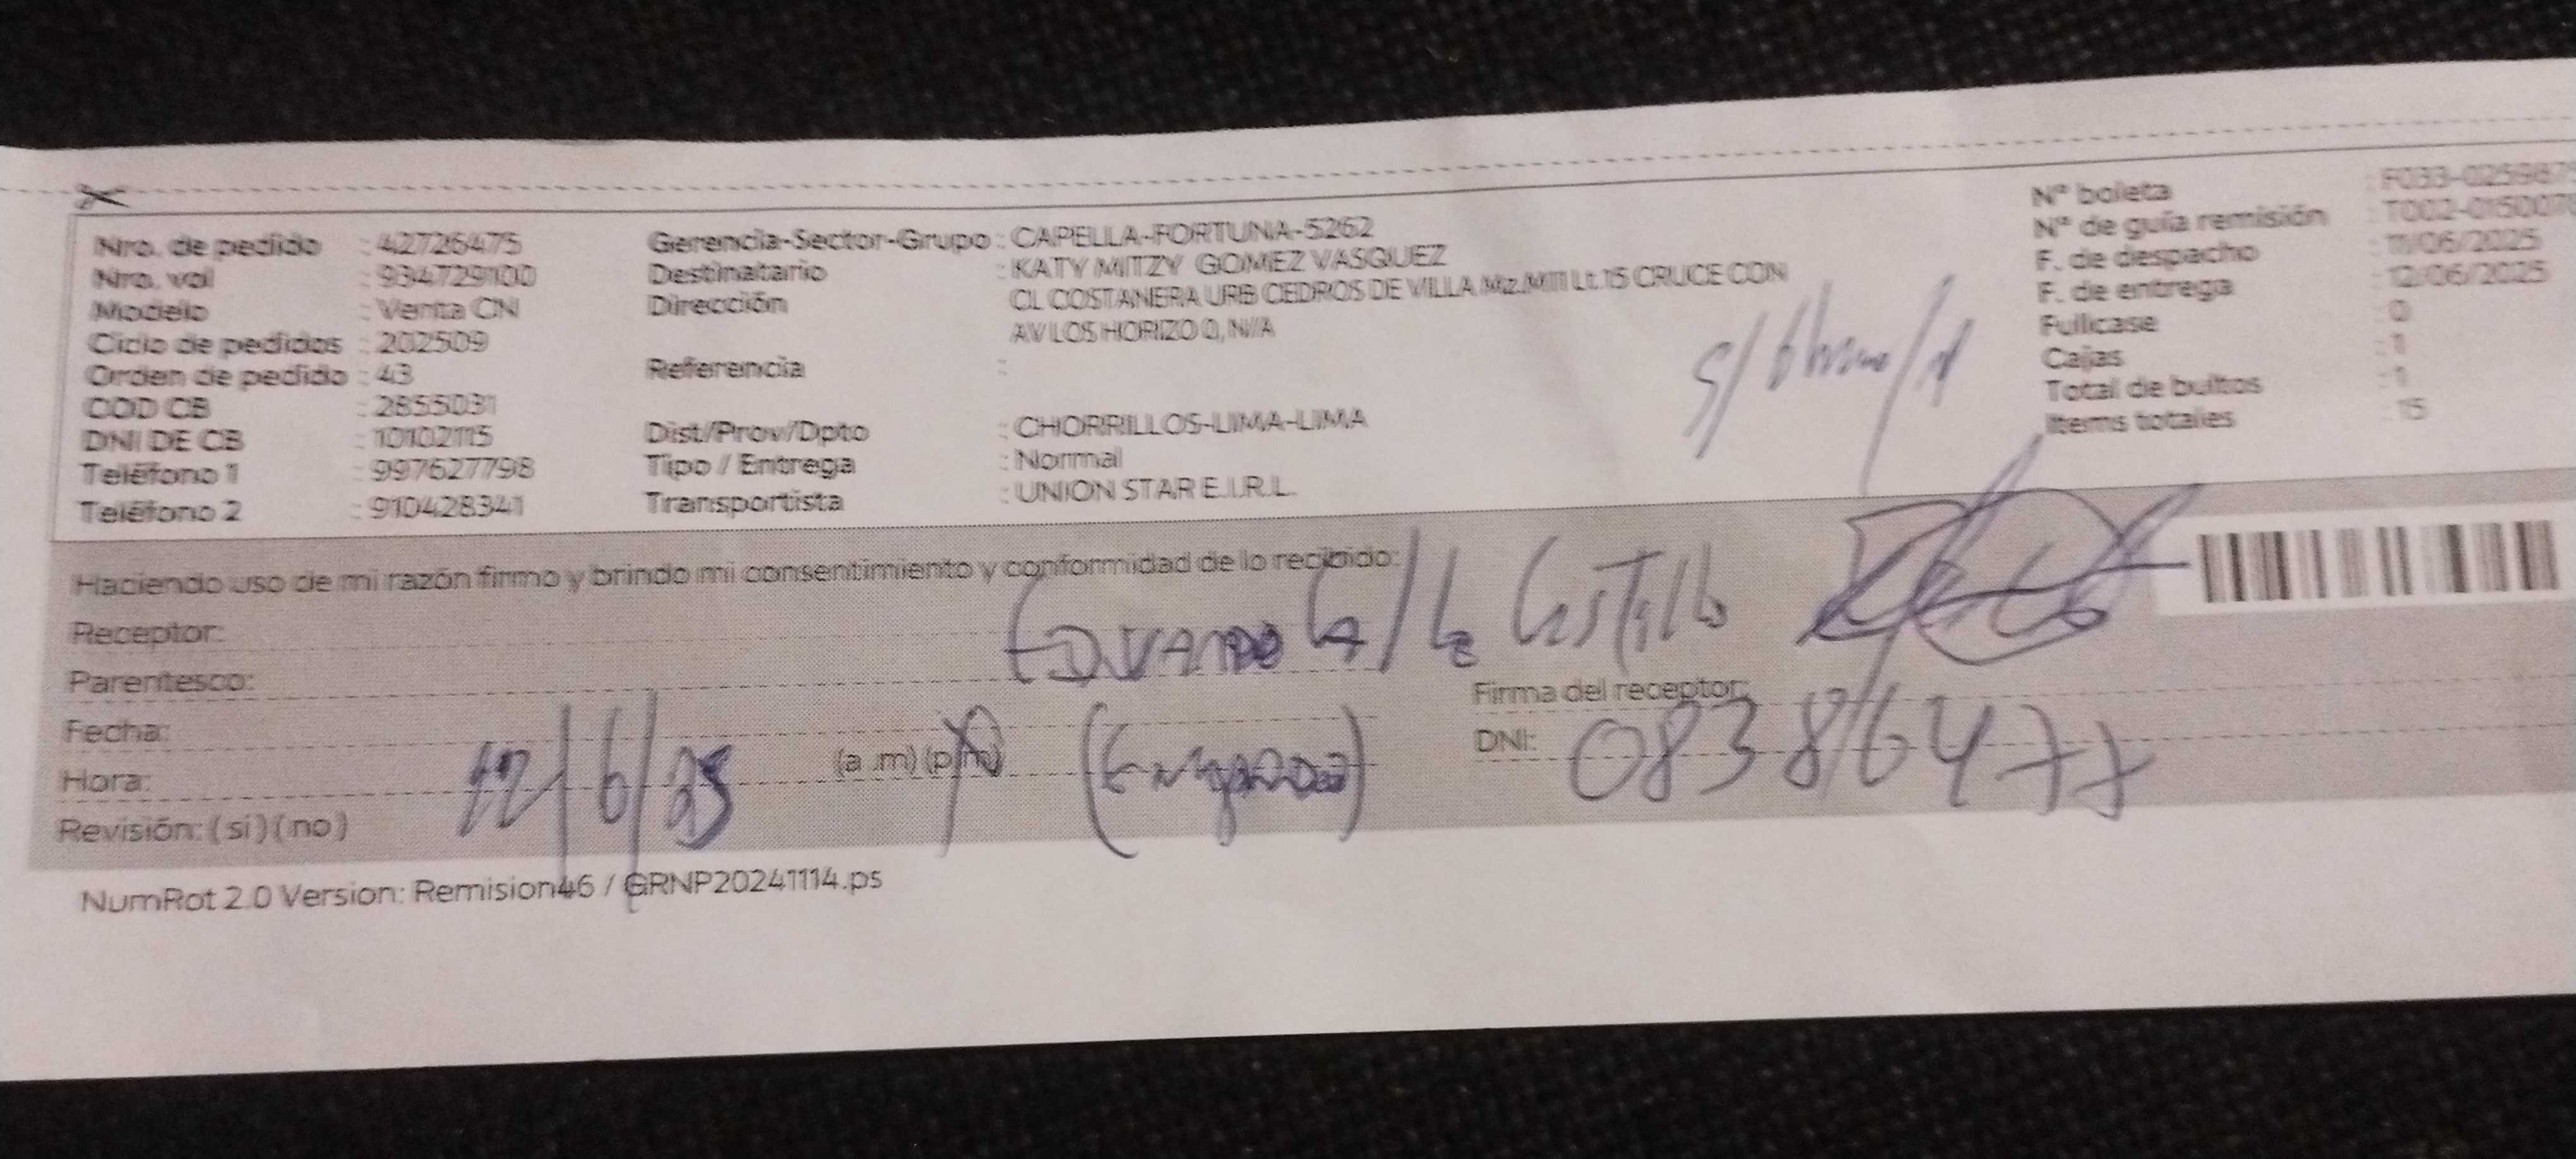 Nro. de pedido : 42726475
Nro. val : 934729100
Modelo : Venta CN
Ciclo de pedidos : 202509
Orden de pedido : 43
COD CB : 2855031
DNI DE CB : 10102115
Teléfono 1 : 997627798
Teléfono 2 : 910428341
Gerencia-Sector-Grupo : CAPELLA-FORTUNA-5262
Destinatario : KATY MITZY GOMEZ VASQUEZ
Dirección : CL COSTANERA URB CEDROS DE VILLA Mz.M111 Lt.15 CRUCE CON
AV LOS HORIZO 0, N/A
Referencia :
Dist/Prov/Dpto : CHORRILLOS-LIMA-LIMA
Tipo / Entrega : Normal
Transportista : UNION STAR E.I.R.L.
N° boleta : F033-0259875
N° de guía remisión : T002-015007
F. de despacho : 11/06/2025
F. de entrega : 12/06/2025
Fullcase : 0
Cajas : 1
Total de bultos : 1
Items totales : 15
Haciendo uso de mi razón firmo y brindo mi consentimiento y conformidad de lo recibido:
Receptor:
Parentesco:
Firma del receptor:
Fecha: 12/6/25
(a .m) (p.m)
DNI: 08386477
Hora:
Revisión: (si) (no)
NumRot 2.0 Version: Remision46 / GRNP20241114.ps